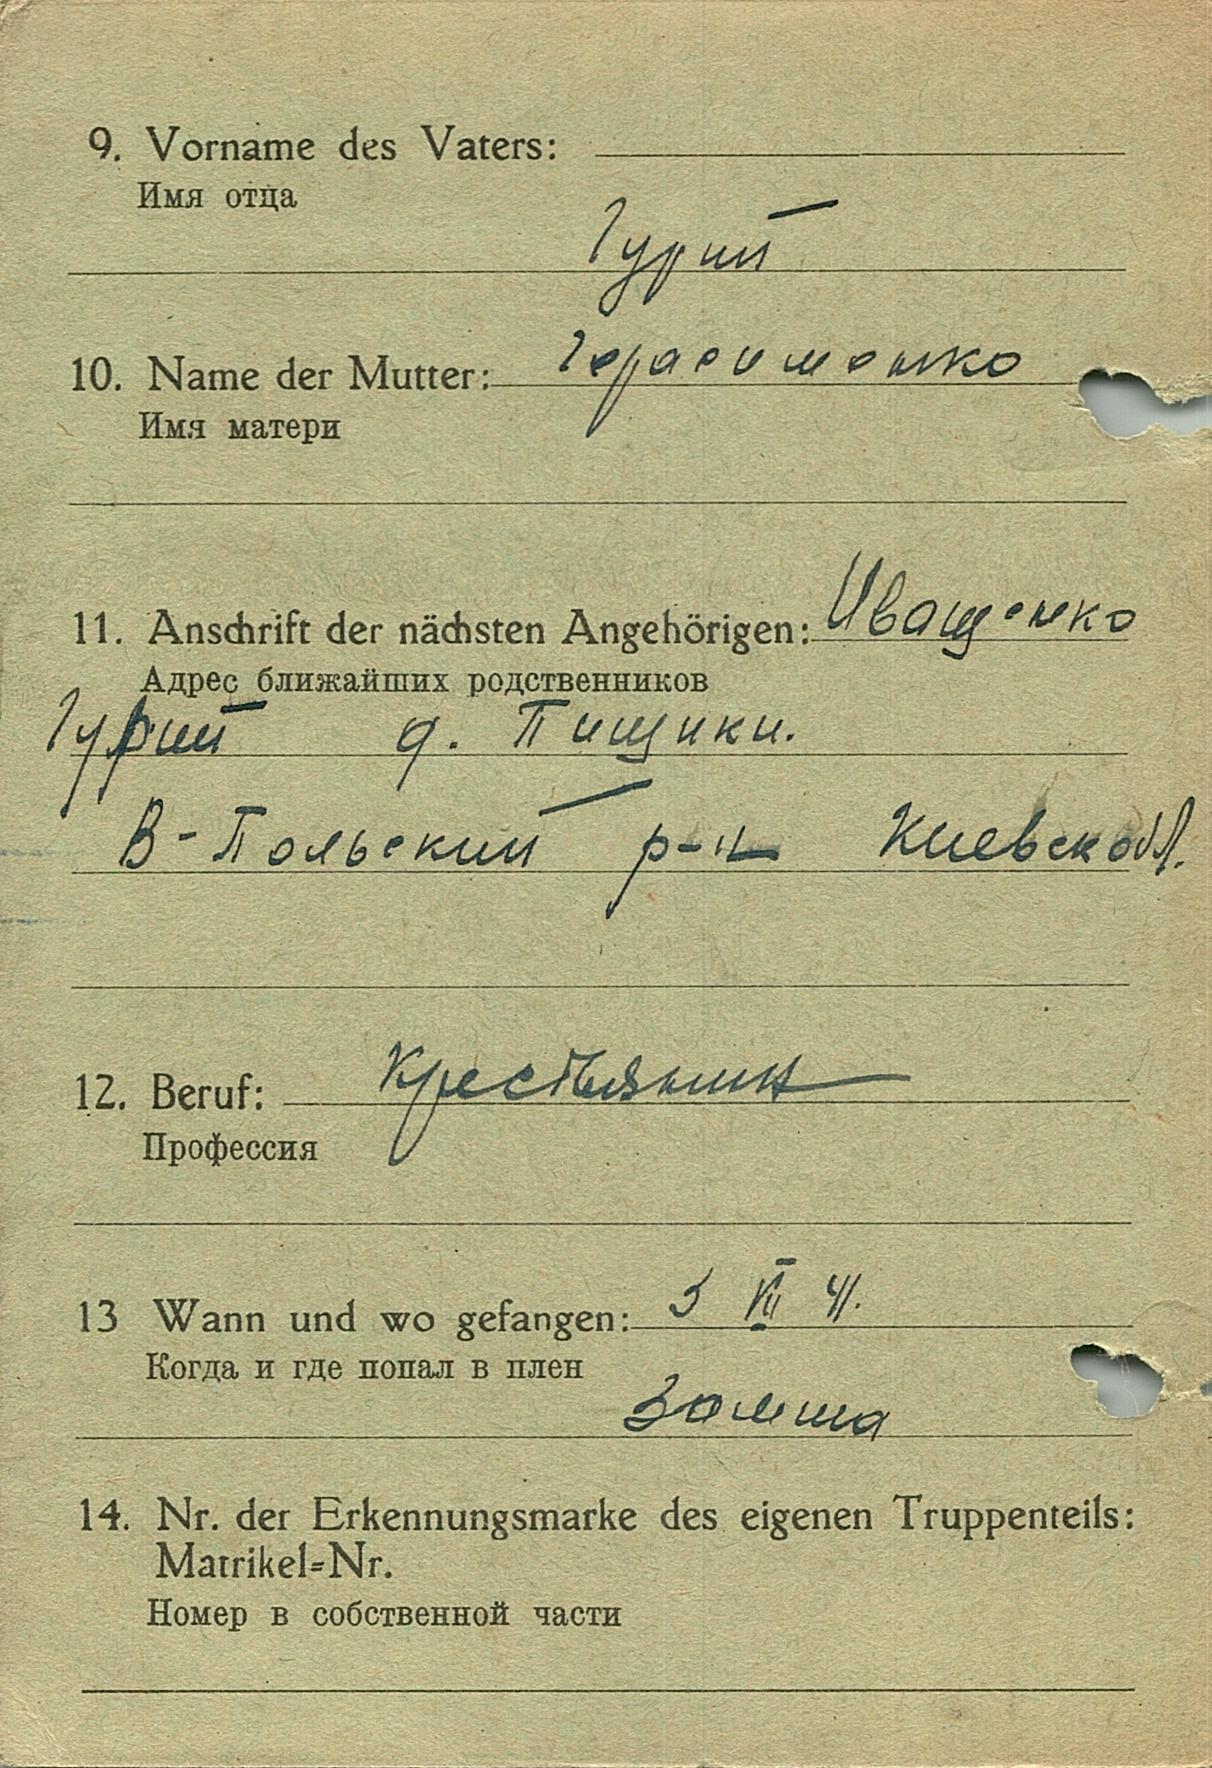 9. Vorname des Vaters:
Имя отца
Гурий
10. Name der Mutter: Герасименко
Имя матери
11. Anschrift der nächsten Angehörigen: Иващенко
Адрес ближайших родственников
Гурий д. Пищики.
В-Польский р-н Киевск обл.
12. Beruf: Крестьянин
Профессия
13 Wann und wo gefangen: 5 VII 41.
Когда и где попал в плен
14. Nr. der Erkennungsmarke des eigenen Truppenteils:
Matrikel=Nr.
Номер в собственной части